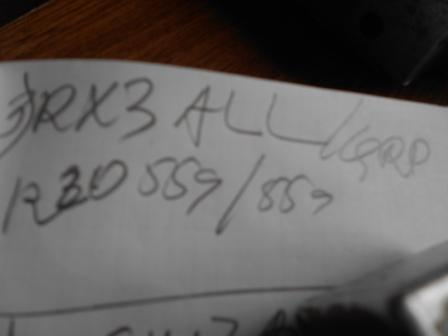 3) RX3 ALL/QRP
R30 559/559